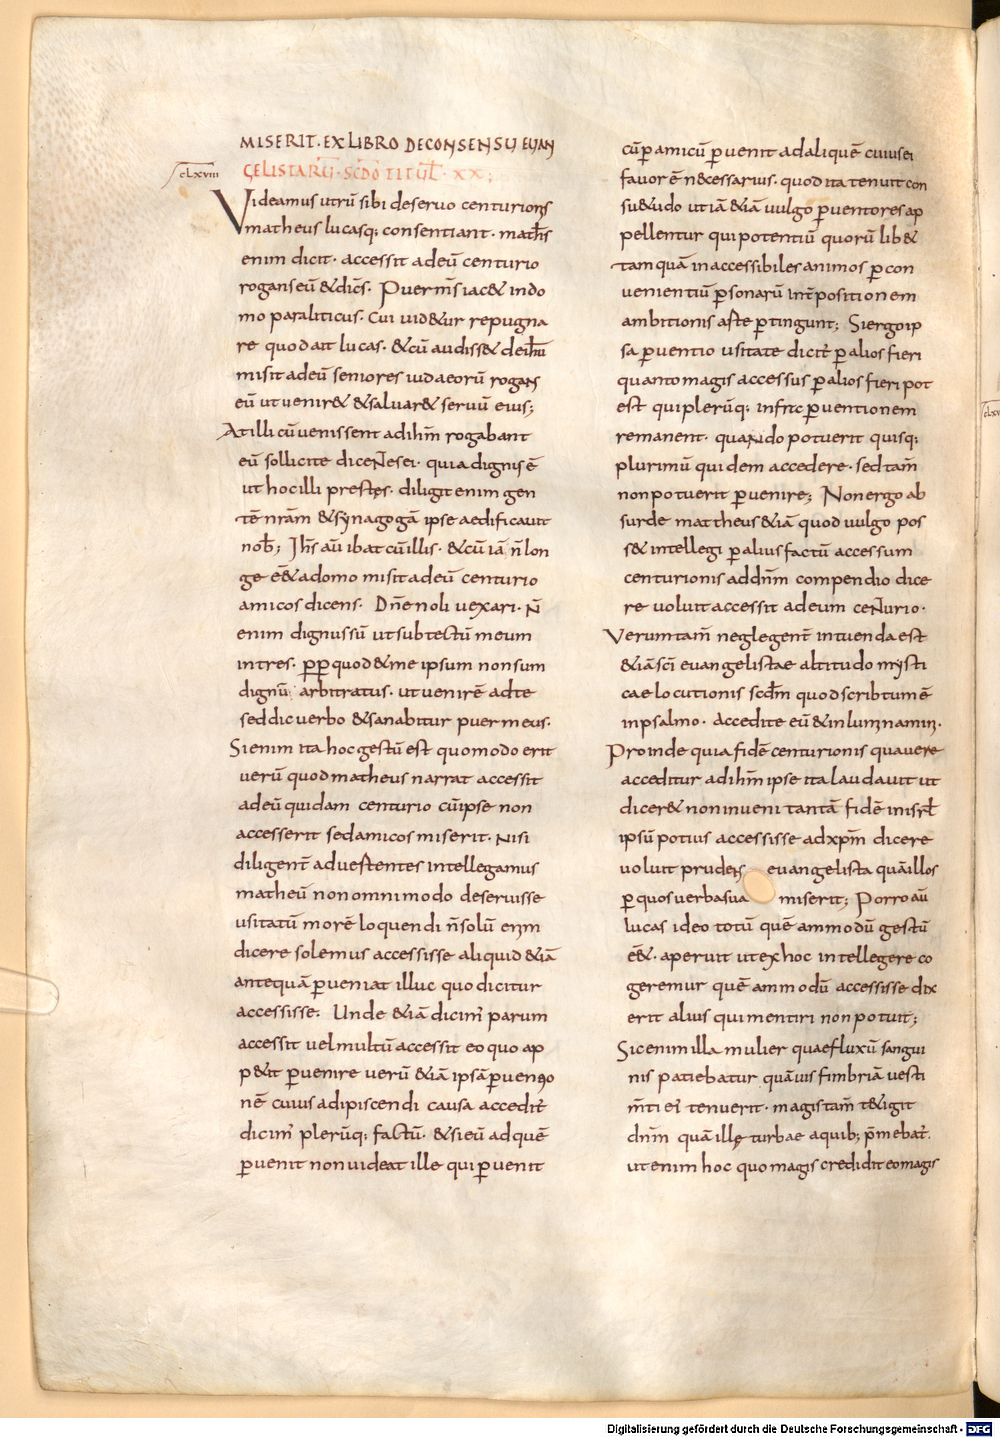 MISERIT · EX LIBRO DE CONSENSU EUAN
clxviii
GELISTARŪ · SCDO TITUL · XX ;
Videamus utrū sibi de seruo centurionis
matheus lucasq; consentiant · matheus
enim dicit · accessit ad eū centurio
rogans eū & dicēs · Puer m̄s iac& in do
mo paraliticus · Cui uid&ur repugna
re quod ait lucas · & cū audiss& de ih̄u
misit ad eū seniores iudaeorū rogans
eū ut uenir& & saluar& seruū eius;
At illi cū uenissent ad ih̄m rogabant
eū sollicite dicentes ei · quia dignis ē
ut hoc illi prestes · diligit enim gen
tē nr̄am & synagogā ipse aedificauit
nob̄; Ih̄s aū ibat cū illis · & cū iā n̄ lon
ge ē& a domo misit ad eū centurio
amicos dicens · Dn̄e noli uexari · N̄
enim dignus sū ut sub tectū meum
intres · pp̄ quod & me ipsum non sum
dignū arbitratus · ut uenirē ad te
sed dic uerbo & sanabitur puer meus ·
Si enim ita hoc gestū est quomodo erit
uerū quod matheus narrat accessit
ad eū quidam centurio cū ipse non
accesserit sed amicos miserit · Nisi
diligent̄ aduertentes intellegamus
matheū non omnimodo deseruisse
usitatū morē loquendi n̄ solū enim
dicere solemus accessisse aliquid &iā
antequā p̄ueniat illuc quo dicitur
accessisse · Unde &iā dicim' parum
accessit uel multū accessit eo quo ap
p&it p̄uenire uerū &iā ipsā p̄uentio
nē cuius adipiscendi causa accedit̄
dicim' plerūq; factū · & si eū ad quē
p̄uenit non uideat ille qui p̄uenit
cū p̄ amicū p̄uenit ad aliquē cuius ei
fauor ē necessarius · quod ita tenuit con
su&udo ut iā &iā uulgo p̄uentores ap
pellentur qui potentiū quorū lib&
tamquā inaccessibiles animos p̄ con
uenientiū p̄sonarū int̄positionem
ambitionis arte p̄tingunt; Si ergo ip
sa p̄uentio usitate dicit̄ p̄ alios fieri
quanto magis accessus p̄ alios fieri pot
est qui plerūq; infr̄a p̄uentionem
remanent · quando potuerit quisq;
plurimū quidem accedere · sed tam̄
non potuerit p̄uenire; Non ergo ab
surde mattheus &iā quod uulgo pos
s& intellegi p̄ alius factū accessum
centurionis ad dn̄m compendio dice
re uoluit accessit ad eum centurio ·
Verumtam̄ neglegent̄ intuenda est
&iā sc̄i euangelistae altitudo mysti
cae locutionis scdm̄ quod scribtum ē
in psalmo · accedite eū & inluminamin̄ ·
Proinde quia fidē centurionis qua uere
acceditur ad ih̄m ipse ita laudauit ut
dicer& non inueni tantā fidē in isrl̄
ipsū potius accessisse ad xp̄m dicere
uoluit prudens euangelista quā illos
p̄ quos uerba sua miserit; Porro aū
lucas ideo totū quēammodū gestū
ē& · aperuit ut ex hoc intellegere co
geremur quēammodū accessisse dix
erit alius qui mentiri non potuit;
Sic enim illa mulier quae fluxū sangui
nis patiebatur quāuis fimbriā uesti
m̄ti ei' tenuerit · magis tam̄ t&igit
dn̄m quā illę turbae a quib; p̄mebat̄ ·
ut enim hoc quo magis credidit eo magis
clxv
Digitalisierung gefördert durch die Deutsche Forschungsgemeinschaft - DFG